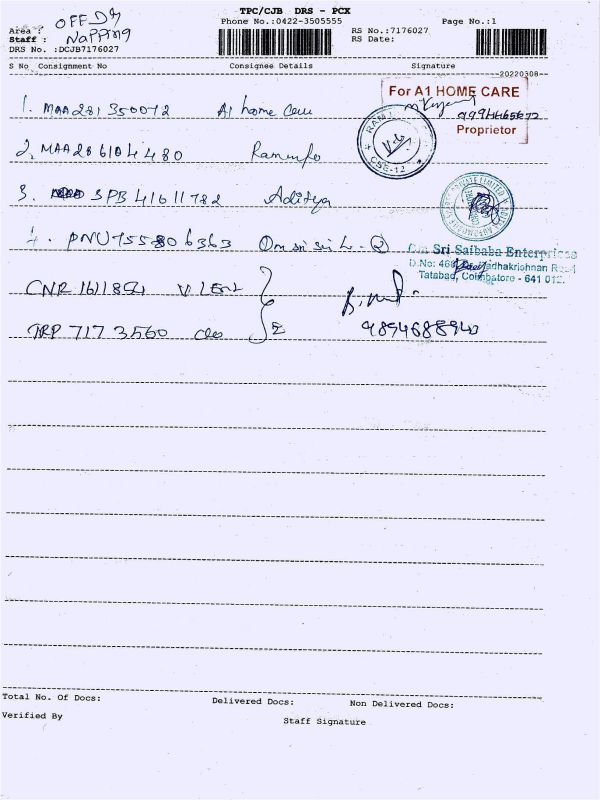 TPC/CJB DRS - PCX
Phone No.:0422-3505555 Page No.:1
Area : OFF D
Staff : Napping
RS No.:7176027
RS Date:
DRS No. :DCJB7176027
S No Consignment No Consignee Details Signature
20220308
1. MAA281350072 A1 home Care
For A1 HOME CARE
Proprietor
RANJ
CSE-12
2. MAA286104480
3. SPB41611782 Aditya
PRIVATE LIMITED
4. PNU755806363 Om sri
Om Sri Saibaba Enterprises
D.No: 46 Radhakrishnan Road
Tatabad, Coimbatore - 641 012.
CNR
TRP 717 3560
9894688940
Total No. Of Docs: Delivered Docs: Non Delivered Docs:
Verified By Staff Signature